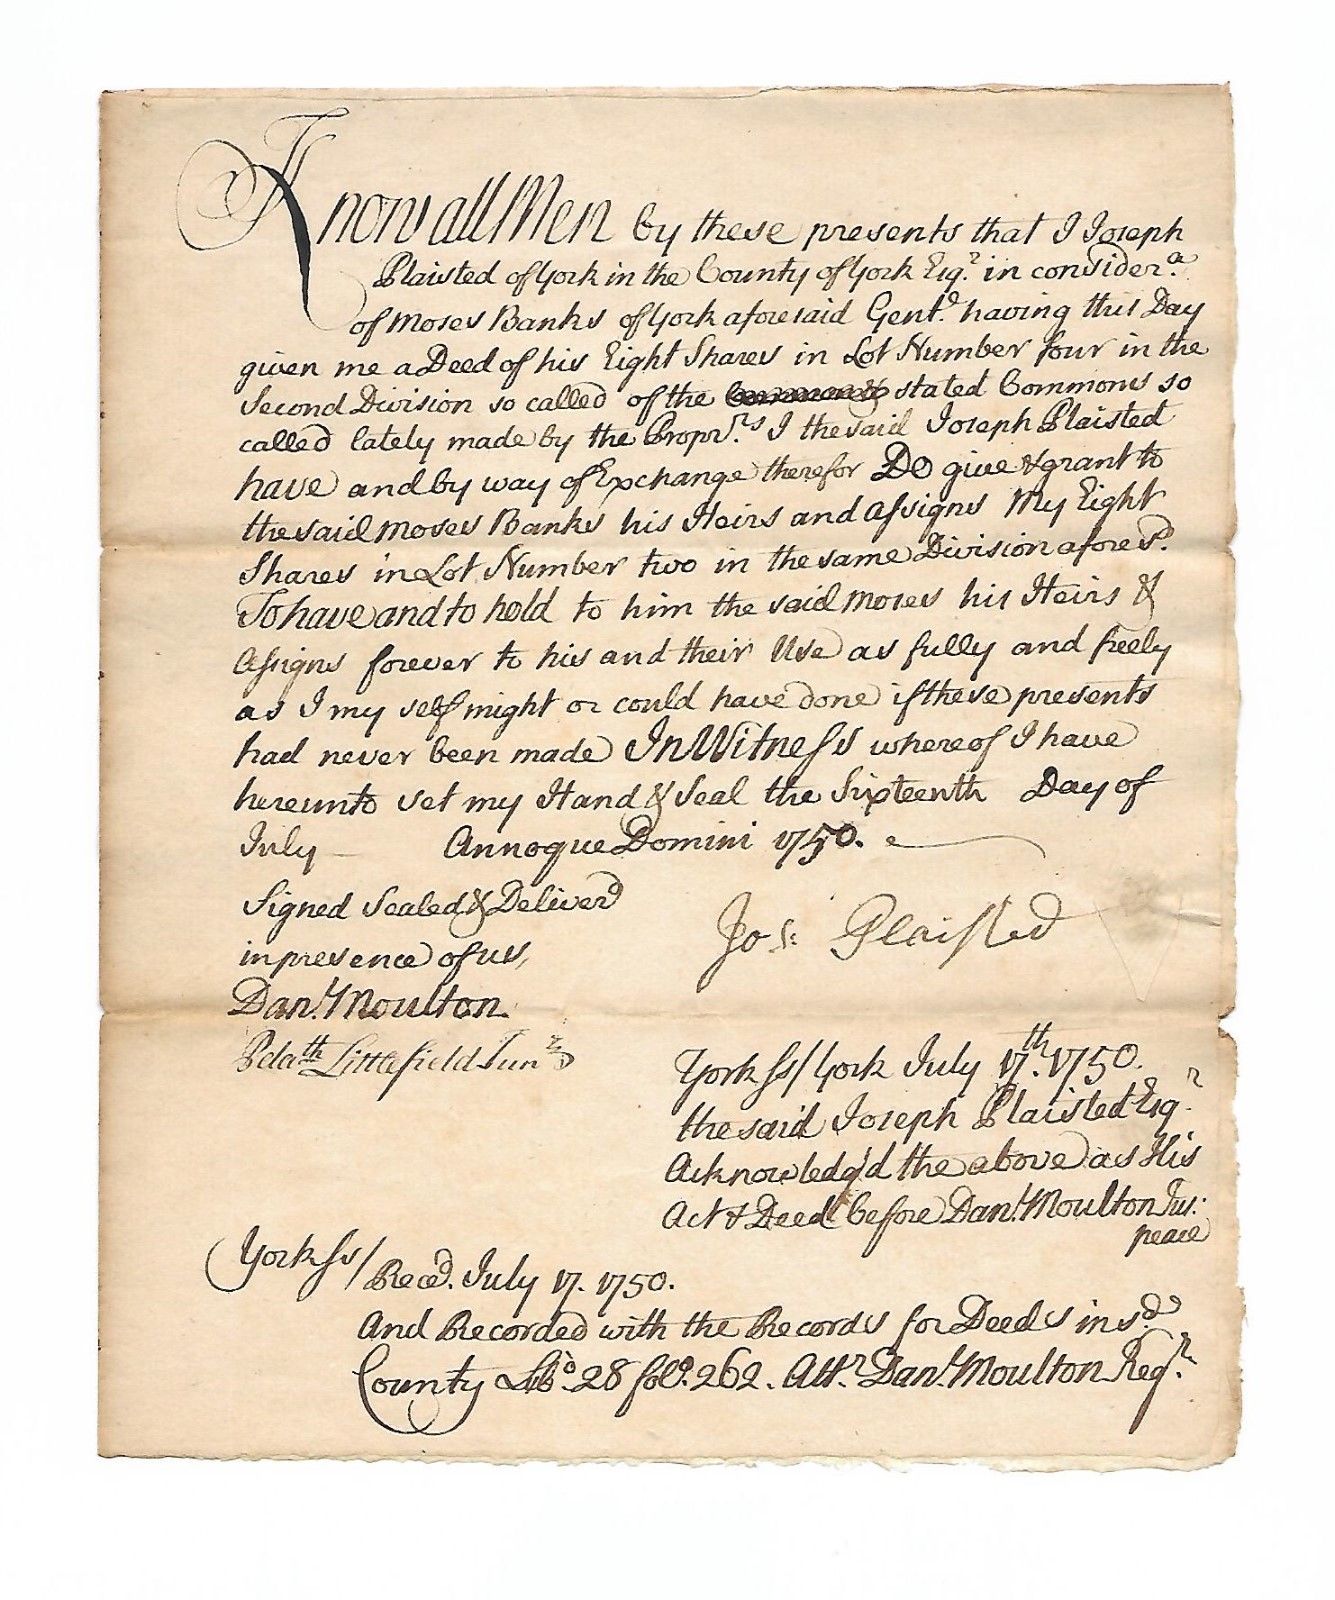 Know all Men by these presents that I Joseph
Plaisted of York in the County of York Esqr. in considera.
of Moses Banks of York aforesaid Gentn. having this Day
given me a Deed of his Eight Shares in Lot Number four in the
Second Division so called of the stated Commons so
called lately made by the Proprs. I the said Joseph Plaisted
have and by way of Exchange therefor Do give & grant to
the said Moses Banks his Heirs and Assigns My Eight
Shares in Lot Number two in the same Division aforesd.
To have and to hold to him the said Moses his Heirs &
Assigns forever to his and their Use as fully and freely
as I my self might or could have done if these presents
had never been made In Witness whereof I have
hereunto set my Hand & Seal the Sixteenth Day of
July — Annoque Domini 1750.
Signed Sealed & Deliverd
in presence of us,
Danl. Moulton
Littlefield Junr
Jos: Plaisted
York ss/ York July 17th. 1750.
the said Joseph Plaisted Esqr
Acknowledg'd the above as His
Act & Deed before Danl. Moulton Jus:
peace
York ss/
Recd. July 17. 1750.
And Recorded with the Records for Deeds in sd.
County Libo. 28 folo. 262. Attr. Danl. Moulton Regr.